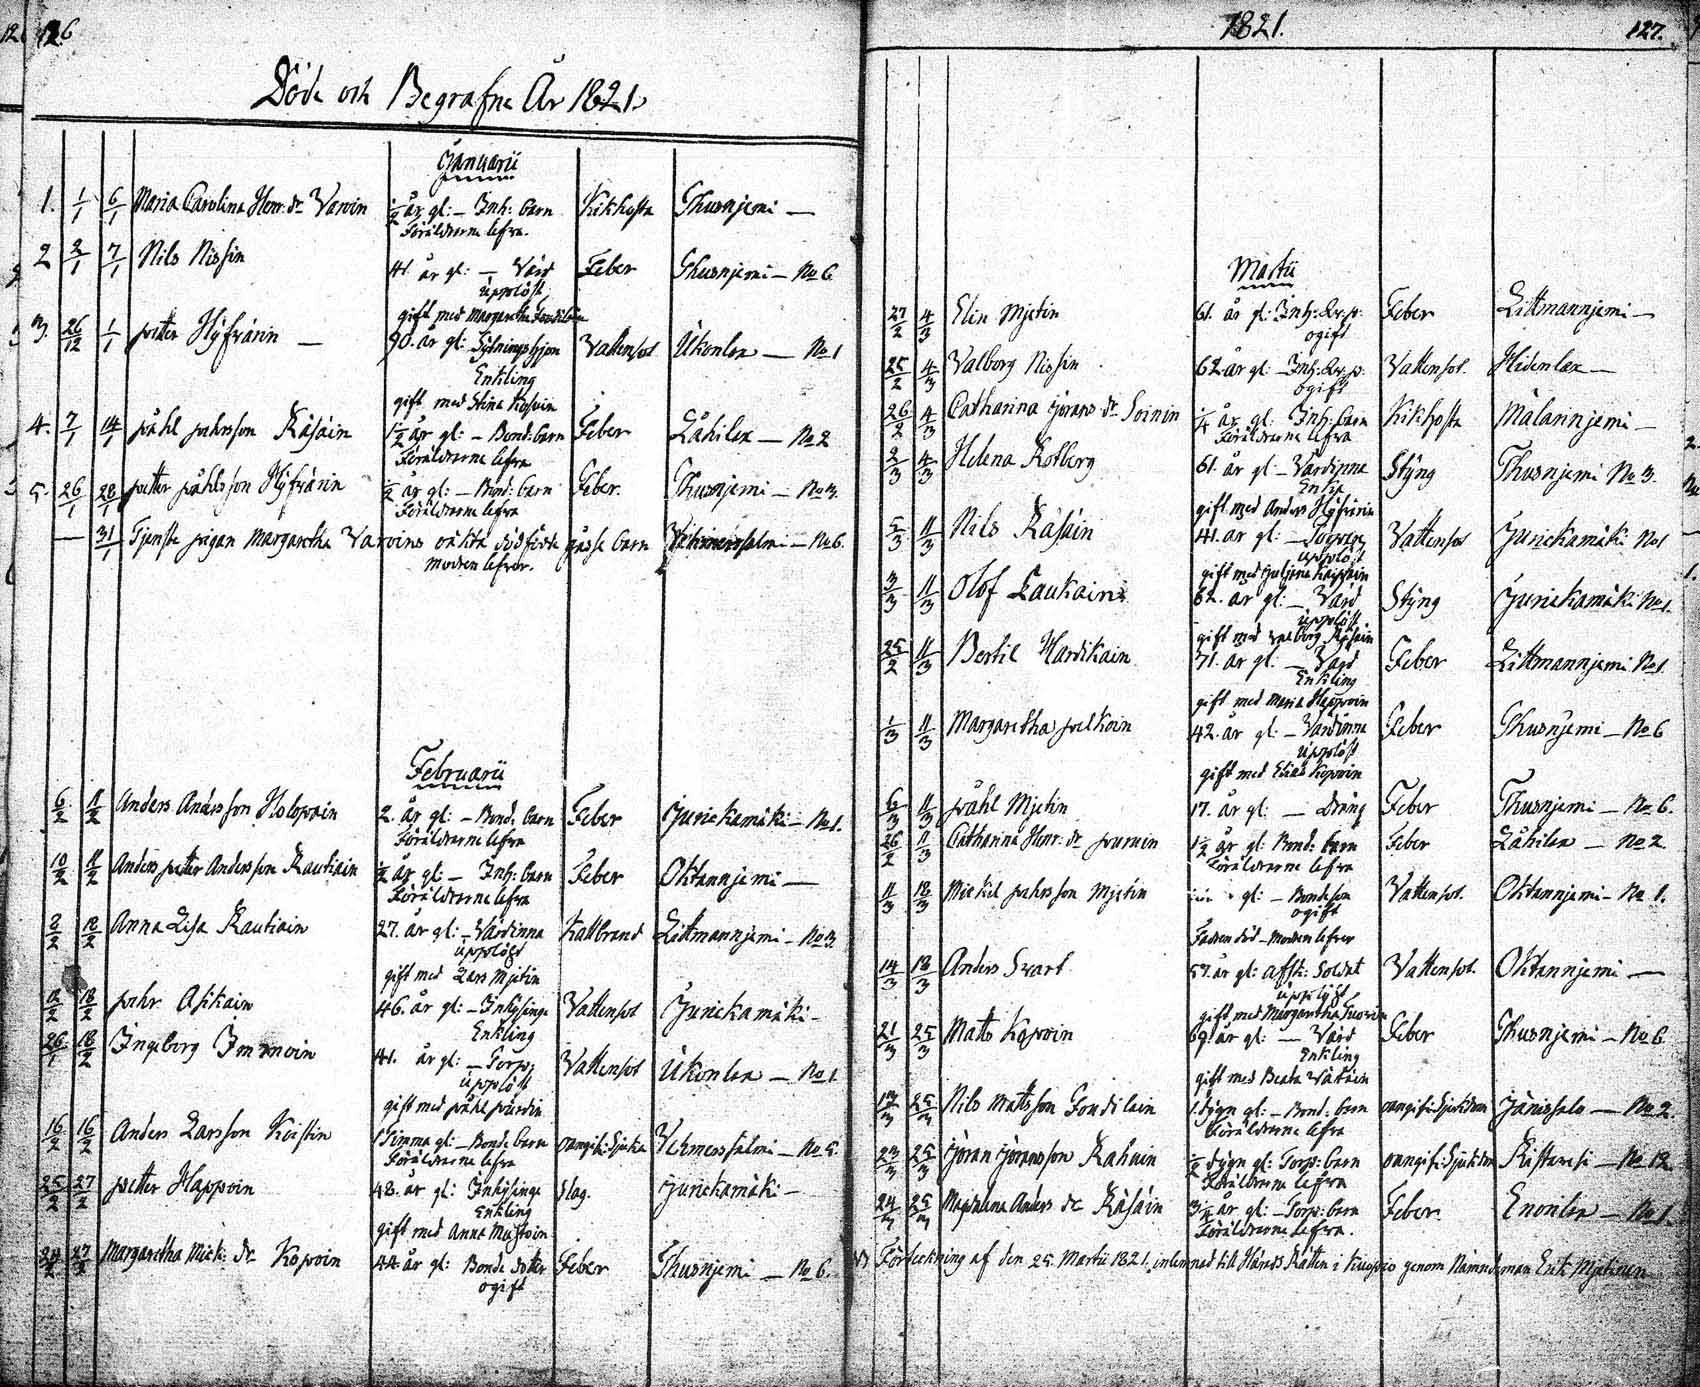 126
Döde och Begrafne År 1821.
Januarii
1. 1/1 6/1 Maria Carolina Henr: dr Varvin ½ år gl: – Inh: barn Kikhosta Thusnjemi —
Föräldrarne lefva.
2 2/1 7/1 Nils Nissin 41. år gl: – Värd Feber Thusnjemi – No 6
upplöst
gift med Margaretha
3. 26/12 1/1 petter Hyfvärin — 90. år gl: Vattensot Ukonlax — No 1
Enkling
gift med Stina
4. 7/1 14/1 påhl pährsson Räsäin 1½ år gl: – Bond: barn Feber Låhilax — No 2
Föräldrarne lefva
5. 26/1 28/1 petter påhlsson Hyfvärin ½ år gl: – Bond: barn Feber. Thusnjemi – No 3.
Föräldrarne lefva
— 31/1 Tjenste pigan Margaretha Varvins oäkta dödfödde gosse barn Vehmersalmi – No 6.
modren lefver.
Februarii
6/2 11/2 Anders Andersson Holopain 2. år gl: – Bond: barn Feber Jurickamäki – No 1.
Föräldrarne lefva
10/2 11/2 Anders petter Andersson Rautiain ½ år gl: – Inh: barn Feber Oktannjemi —
Föräldrarne lefva
3/2 12/2 Anna Lisa Rautiain 27. år gl: – Värdinna Kallbrand Littmannjemi – No 3.
upplöst
gift med Lars Mjetin
12/2 18/2 pehr Asikain 46. år gl: – Inhysinge Vattensot Jurickamäki –
Enkling
26/1 18/2 Ingeborg Immoin 41. år gl: – Torp: Vattensot Ukonlax — No 1
upplöst
gift med påhl
16/2 16/2 Anders Larsson Keistin 1 Timma gl: – Bonde barn oangif: Sjuka Vehmersalmi – No 5.
Föräldrarne lefva
25/2 27/2 petter Happoin 48. år gl: Inhysinge slag. Jurickamäki –
Enkling
gift med Anna
24/2 27/2 Margaretha Mick: dr Kopoin 44 år gl: Bonde dotter Feber Thusnjemi — No 6.
ogift
1821.
127.
Martii
27/2 4/3 Elin Mjetin 61. år gl: Inh: Feber Littmannjemi —
ogift
25/2 4/3 Valborg Nissin 62 år gl: – Inh: Vattensot. Hidenlax —
ogift
26/2 4/3 Catharina Jörans dr Soinin ¼ år gl: Inh: barn Kikhosta Mälarinjemi —
Föräldrarne lefva
2/3 4/3 Helena Kolberg 61. år gl – Värdinna Styng Thusnjemi No 3.
Enka
gift med Anders Hyfvärin
5/3 11/3 Nils Räsäin 41. år gl: – Vattensot Jurickamäki No 1
upplöst
gift med
3/3 11/3 Olof Laukain 62. år gl: – Värd Styng Jurickamäki No 1.
upplöst
gift med Valborg Räsäin
25/2 11/3 Bertil Hardikain 71. år gl: – Värd Feber Littmannjemi No 1.
Enkling
gift med Maria Happoin
1/3 11/3 Margaretha pelkoin 42. år gl: – Värdinna Feber Thusnjemi – No 6
upplöst
gift med Elias Kopoin
6/3 11/3 påhl Mjetin 17. år gl: — Dräng Feber Thusnjemi – No 6.
26/2 11/3 Catharina Henr: dr 1½ år gl: Bond: barn Feber Låhilax — No 2.
Föräldrarne lefva
11/3 18/3 Mickel pehrsson Mjetin gl: – Bondeson Vattensot. Oktannjemi – No 1.
ogift
Fadren död – Modren lefver
14/3 18/3 Anders Svart 57. år gl: afsk: Soldat Vattensot. Oktannjemi —
upplöst
gift med Margaretha
21/3 25/3 Matts Kopoin 69. år gl: — Värd Feber Thusnjemi – No 6.
Enkling
gift med Beata
25/3 Nils Mattsson 1 dygn gl: – Bond: barn oangif: Sjukdom Jänissalo — No 2.
Föräldrarne lefva
23/3 25/3 Jöran Jöransson ½ dygn gl: Torp: barn oangif: Sjukdom — No 12
Föräldrarne lefva
24/3 25/3 Magdalena Anders dr Räsäin 3¼ år gl: – Torp: barn Feber. Enonlax — No 1.
Föräldrarne lefva.
Förteckning af den 25. Martii 1821. inlemnad till Härads Rätten i Kuopio genom Nämndeman Erik Mjetinen